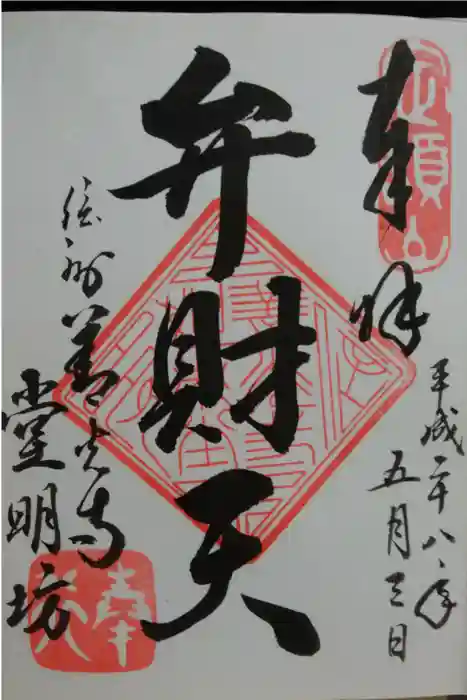 奉拝
平成二十八年
五月三日
弁財天
信州善光寺
堂明坊